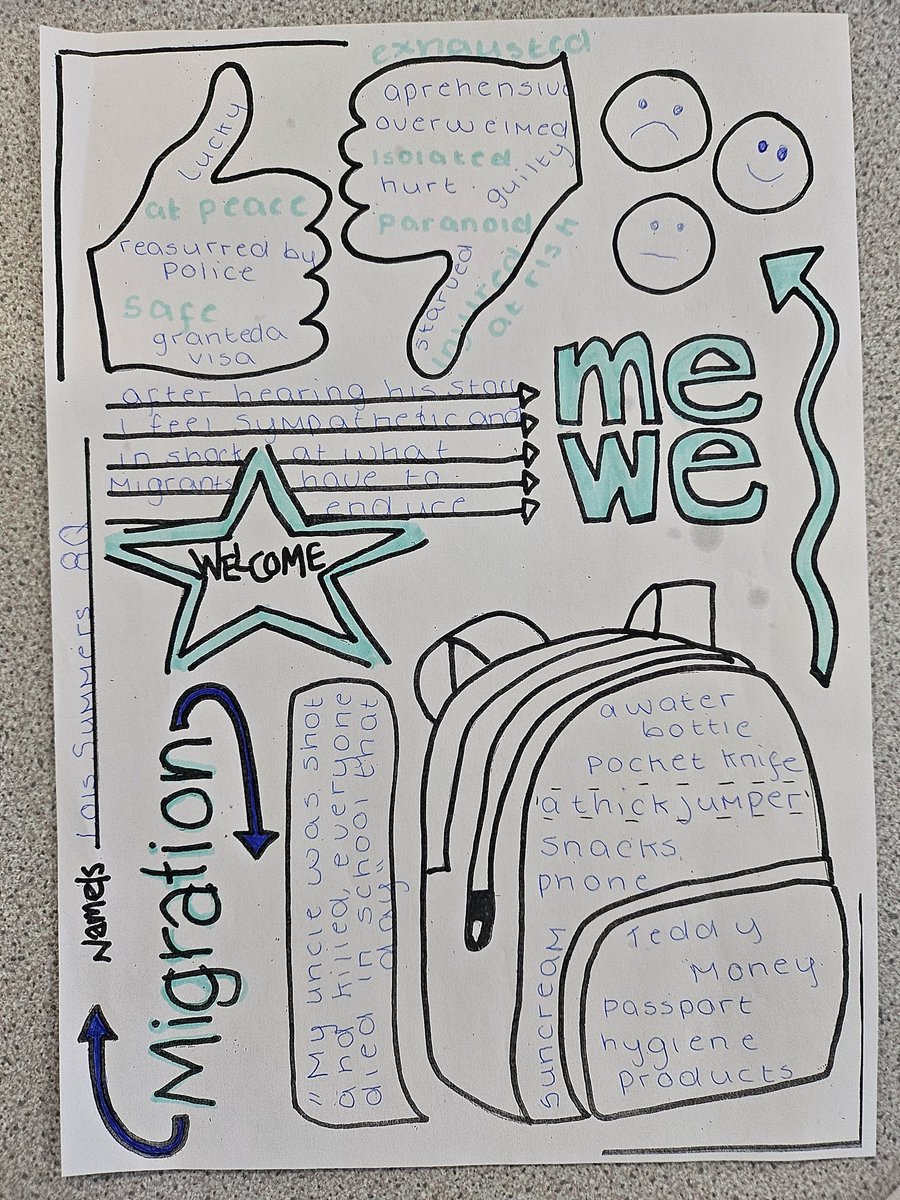 lucky
at peace
reasurred by
police
safe
granteda
visa
exhausted
aprehensive
overwelmed
isolated
hurt
guilty
paranoid
starved
injured
at risk
after hearing his story
i feel sympathetic and
in shock at what
Migrants have to
endure
me
we
WELCOME
Names Lois Summers 8Q
Migration
"My uncle was shot
and killed, everyone
died in school that
day"
a water
bottle
pocket knife
'a thick jumper'
snacks
phone
suncream
Teddy
Money
passport
hygiene
products